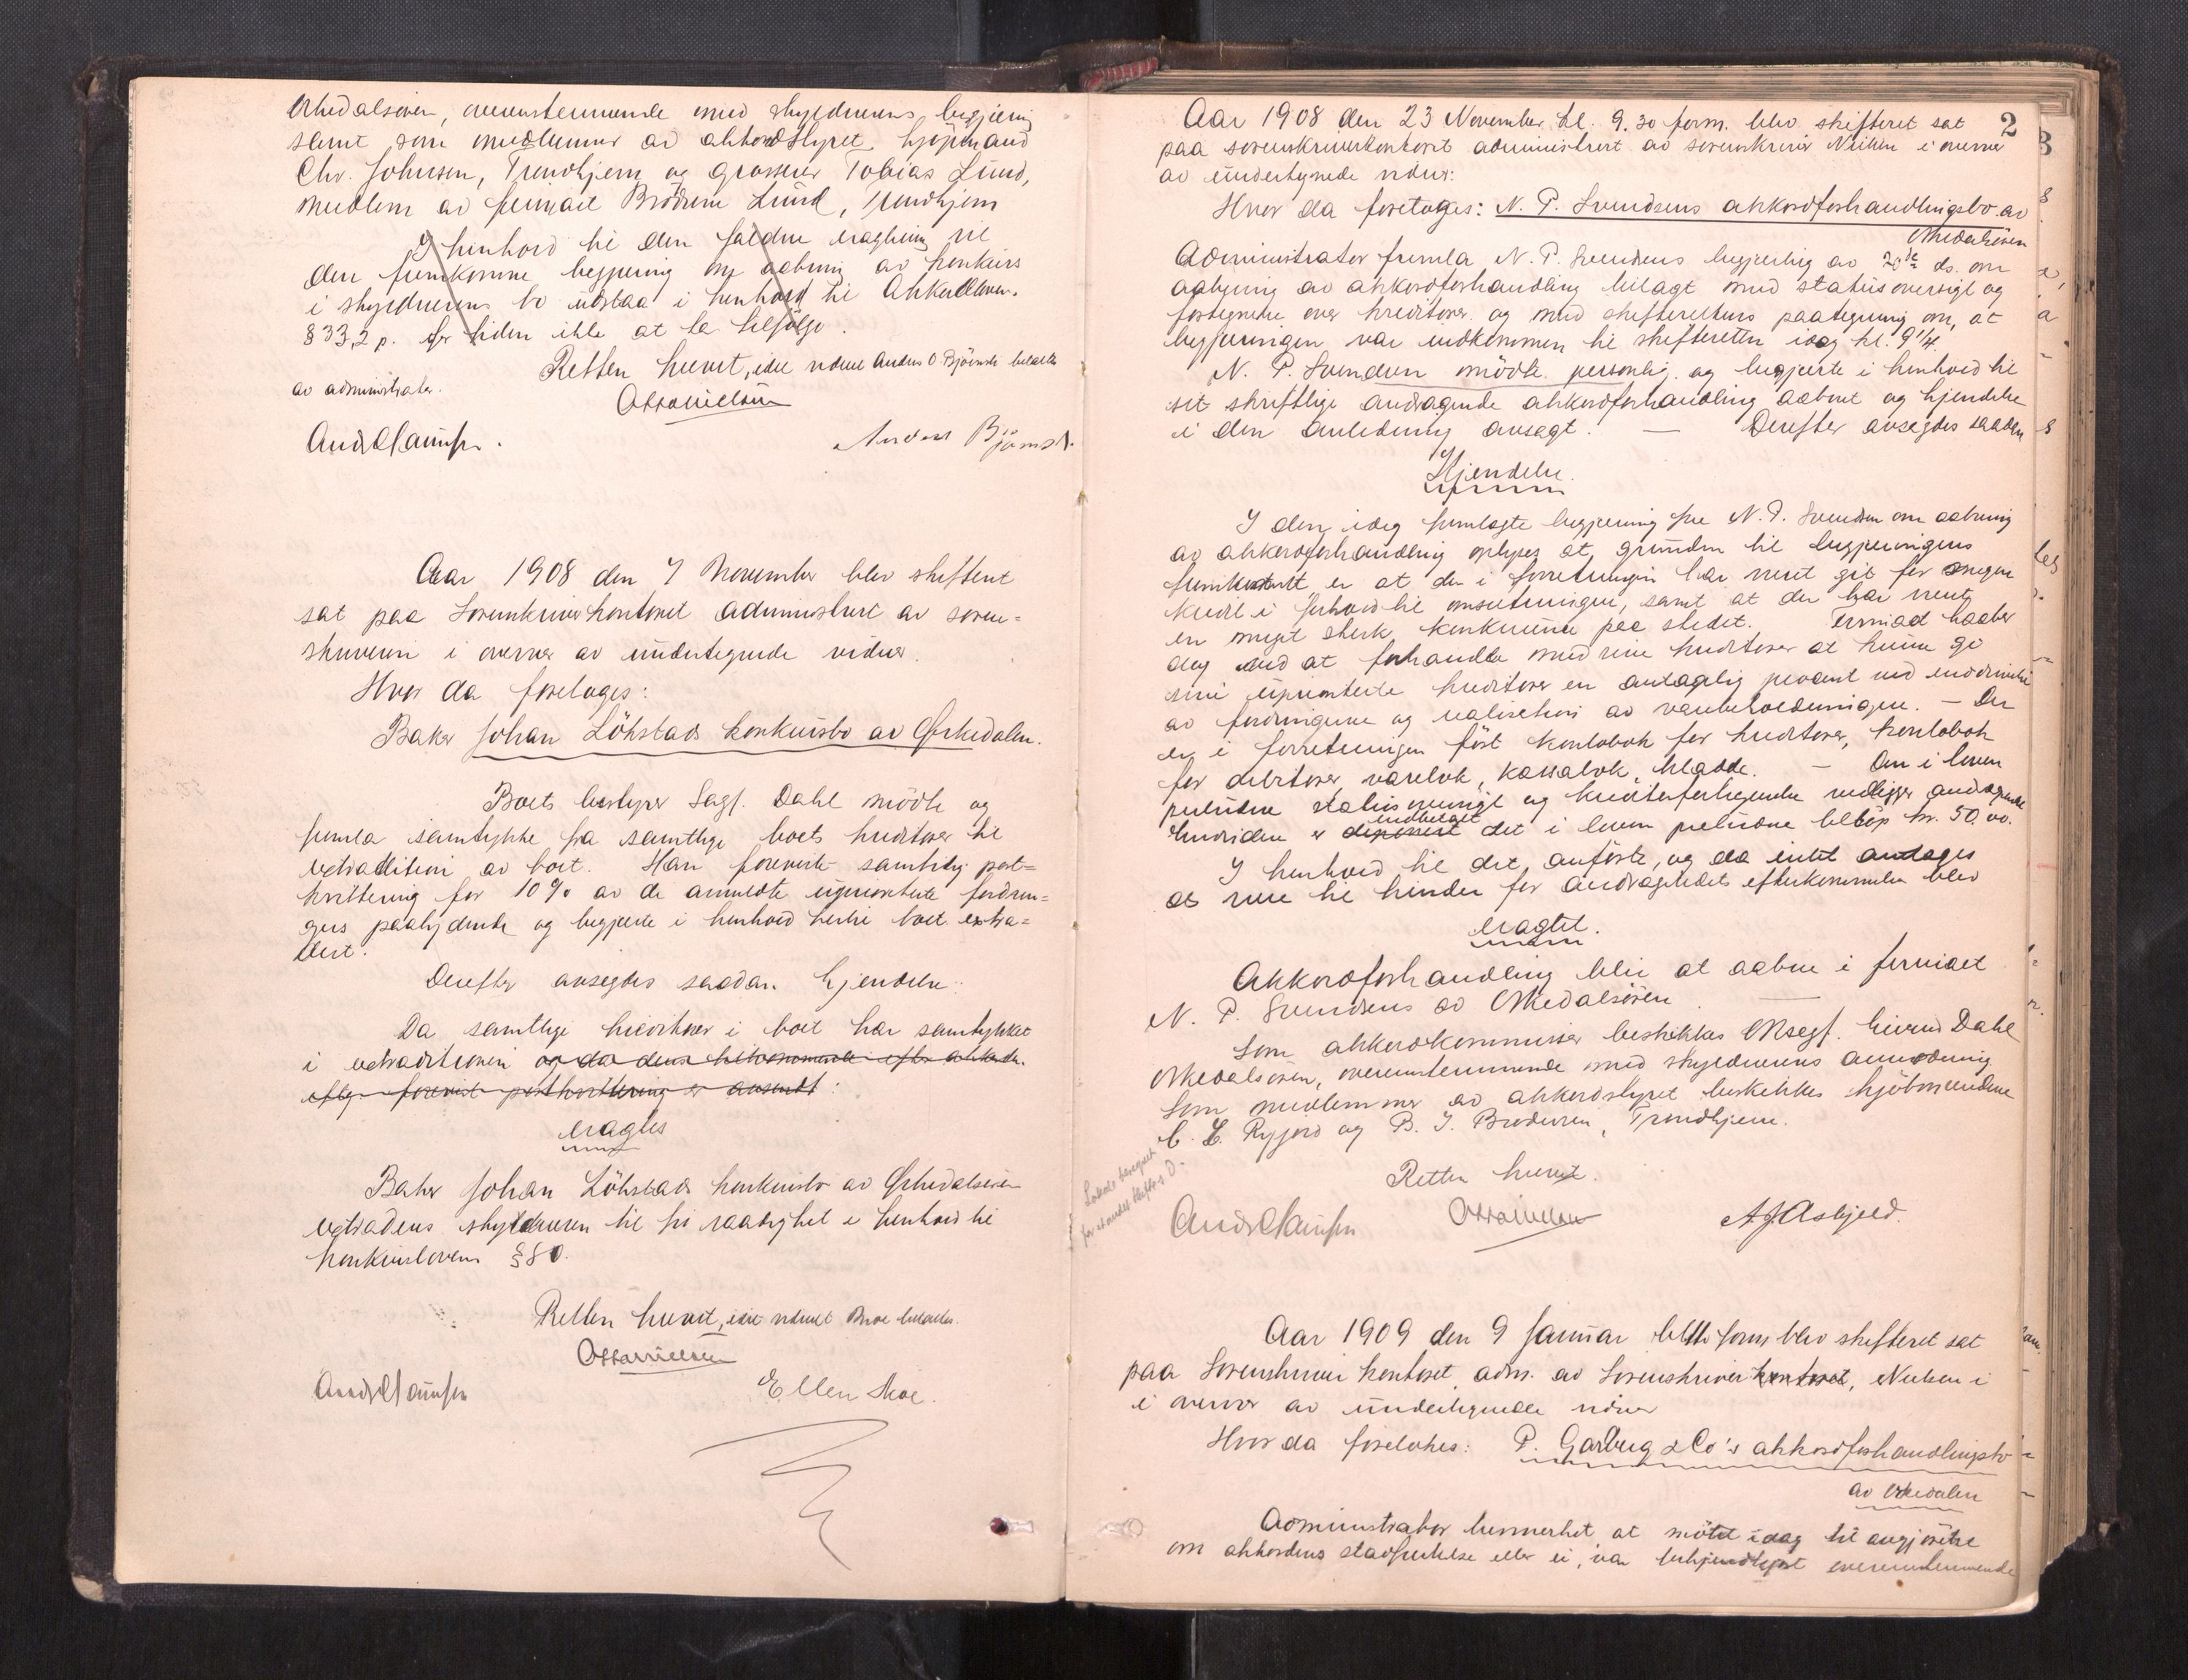 Orkedalsøren, overensstemmende med skyldnerens begjæring
samt som medlemmer av akkordstyret kjøpmand
Chr. Johnsen, Trondhjem og Grosserer Tobias Lund,
medlem av firmaet Brødrene Lund, Trondhjem
I henhold til den faldne eragtning vil
den fremkomne begjæring om aabning av konkurs
i skyldnerens bo udstaa i henhold til Akkordloven.
§ 33, 2 p. for tiden ikke at ta tilfølge.
Retten hævet, idet vidnet Anders O. Bjørnst. betaltes
av administrator.
Anders Bjørnst.
Aar 1908 den 7 November blev skifteret
sat paa Sorenskriverkontoret administreret av soren=
skriveren i overvær av undertegnede vidner.
Hvor da foretoges:
Baker Johan Löhstads konkursbo av Orkedalen.
Boets bestyrer Sagf. Dahl mödte og
fremla samtykke fra samtlige boets kreditorer til
extradition av boet. Han foreviste samtidig post=
kvittering for 10% av de anmeldte uprioriterte fordrin=
gers paalydende og begjærte i henhold hertil boet extra=
dert.
Derefter avsagdes saadan kjendelse:
Da samtlige kreditorer i boet har samtykket
i extraditionen og da dens
efter forevist postkvittering er avsendt:
eragtes
Baker Johan Löhstads konkursbo av Orkedalsøren
extraderes skyldneren til fri raadighet i henhold til
konkurslovens § 80.
Retten hævet, idet vidnet Moe betaltes.
Ellen Moe.
2
Aar 1908 den 23 November kl. 9.30 form. blev skifteret sat
paa sorenskriverkontoret administrert av sorenskriver Nielsen i overvær
av undertegnede vidner:
Hvor da foretoges: N. P. Svendsens akkordforhandlingsbo av
Orkedalsøren
Administrator fremla N. P. Svendsens begjæring av 20de ds. om
aabning av akkordforhandling bilagt med statusoversigt og
fortegnelse over kreditorer og med skifterettens paategning om, at
begjæringen var indkommen til skifteretten idag kl. 9 1/4.
N. P. Svendsen mödte personlig og begjærte i henhold til
sit skriftlige andragende akkordforhandling aabnet og kjendelse
i den anledning avsagt. — Derefter avsagdes saadan
Kjendelse.
I den idag fremlagte begjæring fra N. P. Svendsen om aabning
av akkordforhandling oplyses at grunden til begjæringens
fremkomst er at der i forretningen har været git for megen
kredit i forhold til omsætningen, samt at der har været
en meget sterk konkurrence paa stedet. Firmaet haaber
dog ved at forhandle med sine kreditorer at kunne gi
sine uprioriterte kreditorer en antagelig procent ved inddrivelse
av fordringerne og realisation av varebeholdningen. — Der
er i forretningen ført kontobok for kreditorer, kontobok
for debitorer, varebok, kassabok, kladde. — Den i loven
paabudne statusoversigt og kreditorfortegnelse vedligger andragende
indbetalt
hvoriden er deponert det i loven paabudne beløp kr. 50.00.
I henhold til det anførte, og da intet antages
at være til hinder for andragendets efterkommelse blev
eragtet.
Akkordforhandling blir at aabne i firmaet
N. P. Svendsens av Orkedalsøren. —
Som akkordkommissær beskikkes Orsagf. Eivind Dahl
Orkedalsøren, overensstemmende med skyldnerens anmodning
Som medlemmer av akkordstyret beskikkes kjøbmændene
C. L. Ryjord og B. J. Brodersen, Trondhjem.
Retten hævet.
A. J. Asbjeld.
Aar 1909 den 9 Januar kl. 11 form blev skifteret sat
paa Sorenskriverkontoret adm. av Sorenskriver kontoret, Nielsen i
i overvær av undertegnede vidner
Hvor da foretokes: P. Garberg & Co's akkordforhandlingsbo
av Orkedalen
Administrator bemerket at mötet idag til avgjørelse
om akkordens stadfæstelse eller ei, var bekjendtgjort overensstemmende